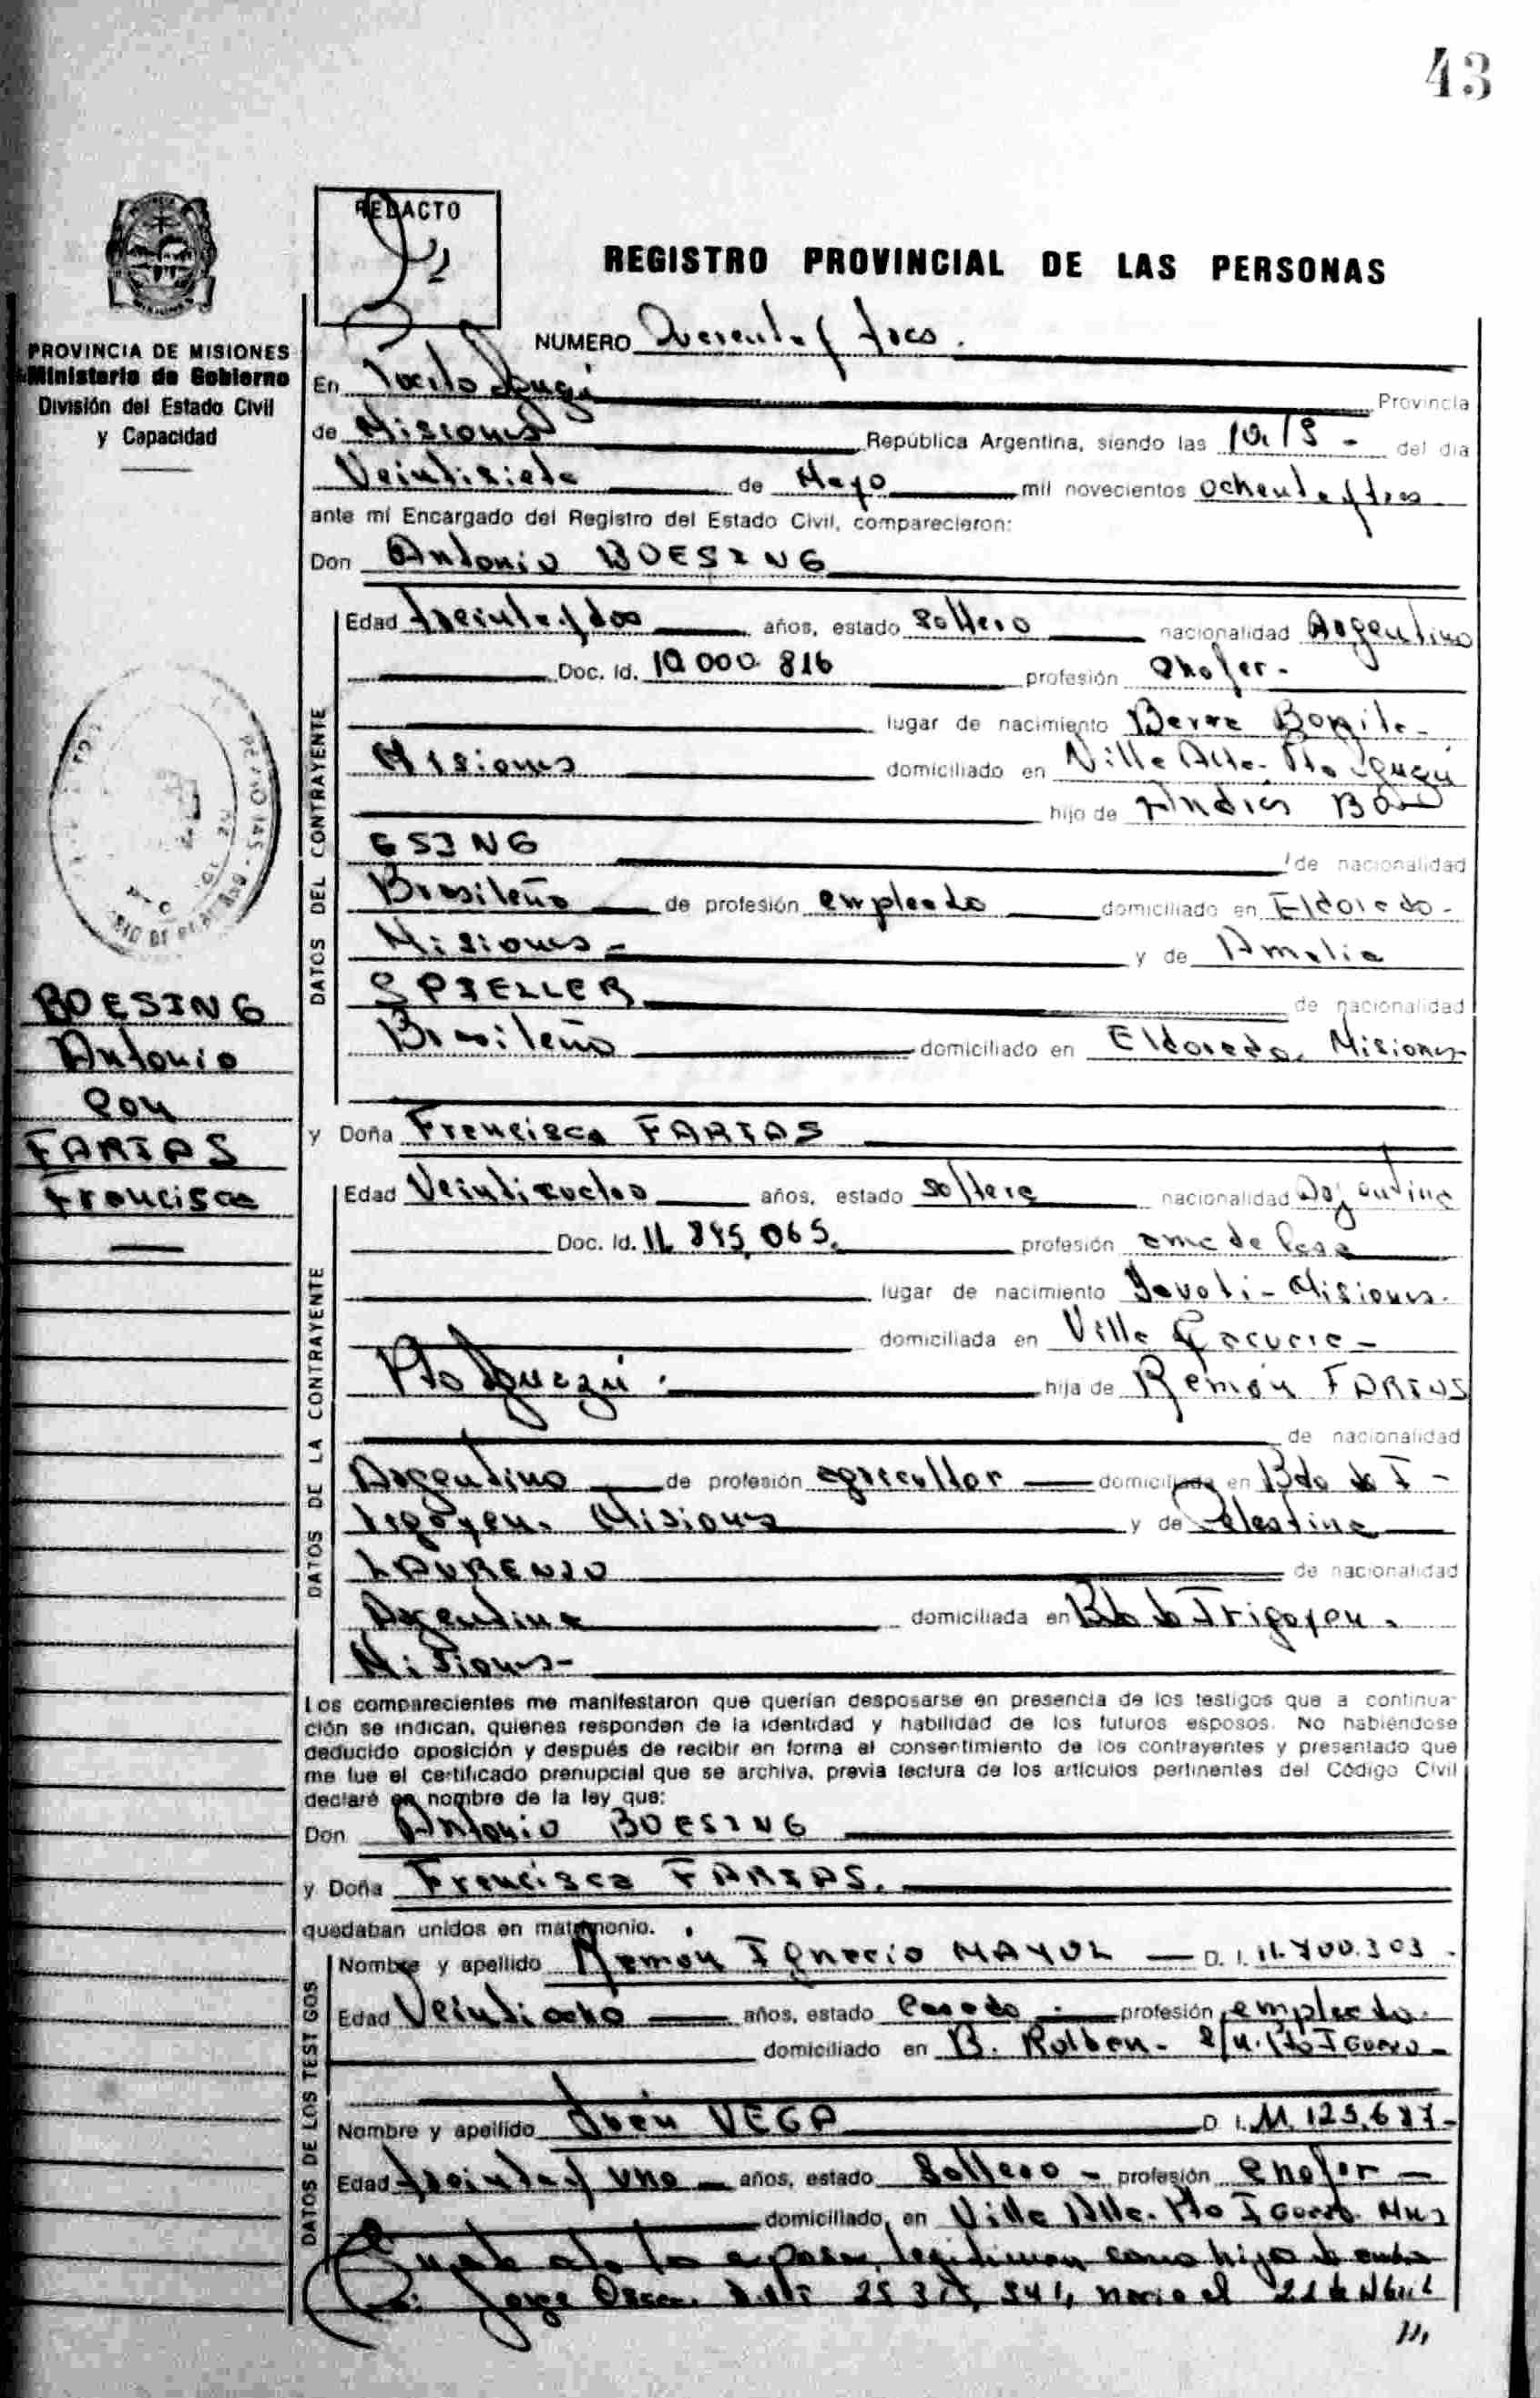 43
REDACTO
REGISTRO PROVINCIAL DE LAS PERSONAS
PROVINCIA DE MISIONES
Ministerio de Gobierno
División del Estado Civil
y Capacidad
NUMERO Cuarenta y tres.
En Puerto Iguazú Provincia
de Misiones República Argentina, siendo las 10,15 - del día
Veintisiete de Mayo mil novecientos ochenta y tres
ante mí Encargado del Registro del Estado Civil, comparecieron:
Don Antonio BOESING
DATOS DEL CONTRAYENTE
Edad treinta y dos años, estado soltero nacionalidad Argentino
Doc. Id. 10.000.816 profesión chofer-
lugar de nacimiento Barra Bonita-
Misiones domiciliado en Villa Alta. Pto Iguazú
hijo de Andrés BO
ESING de nacionalidad
Brasileño de profesión empleado domiciliado en Eldorado-
Misiones- y de Amalia
SPIELLER de nacionalidad
Brasileña domiciliado en Eldorado. Misiones
BOESING
Antonio
con
FARIAS
Francisca
y Doña Francisca FARIAS
DATOS DE LA CONTRAYENTE
Edad años, estado soltera nacionalidad Argentina
Doc. Id. 11.845.065. profesión ama de casa
lugar de nacimiento - Misiones.
domiciliada en Villa
Pto Iguazú. hija de Ramón FARIAS
de nacionalidad
Argentino de profesión agricultor domiciliado en Bdo de I-
rigoyen. Misiones y de Celestina
LAURENJO de nacionalidad
Argentina domiciliada en Bdo de Irigoyen.
Misiones-
Los comparecientes me manifestaron que querían desposarse en presencia de los testigos que a continua-
ción se indican, quienes responden de la identidad y habilidad de los futuros esposos. No habiéndose
deducido oposición y después de recibir en forma el consentimiento de los contrayentes y presentado que
me fue el certificado prenupcial que se archiva, previa lectura de los artículos pertinentes del Código Civil
declaré en nombre de la ley que:
Don Antonio BOESING
y Doña Francisca FARIAS.
quedaban unidos en matrimonio.
DATOS DE LOS TESTIGOS
Nombre y apellido Ramón Ignacio MAYOL D. I. 11.700.303.
Edad Veintiocho años, estado casado profesión empleado.
domiciliado en B. Roldan- s/n. Pto Iguazu-
Nombre y apellido Juan VEGA D. I. M. 123.687-
Edad treinta y uno años, estado soltero - profesión chofer
domiciliado en Villa Alta. Pto Iguazu. Mnes
acto los esposos legitiman como hijo de ambos
a: Jorge Oscar nacio el 21 de Abril